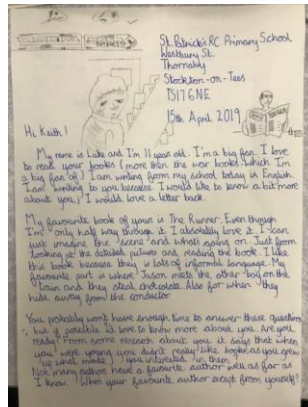 St. Patrick's RC Primary School
Westbury St.
Thornaby
Stockton-on-Tees
TS17 6NE
15th April 2019
Hi Keith!
My name is Luke and I'm 11 year old. I'm a big fan. I love
to read your books (more then the war books which I'm
a big fan of) I am writing from my school today in English.
I am writing to you because I would like to know a bit more
about you, I would love a letter back.
My favourite book of your is The Runner. Even though
I'm only half way through it I absolutely love it. I can
just imagine the scene and whats going on. Just from
looking at the detailed picture and reading the book. I like
this book because they is lots of informal language. My
favourite part is where Jason meets the other boy on the
train and they steal chocolate. Also for when they
hide away from the conductor
You probably won't have enough time to answer these question
but if possible I'd love to know more about you. Are you
ready? From some reseach about you it says that when
you were young you didn't really like books, as you grew
up what made you interested in them
Not many authors have a favourite author well as far as
I know. Who your favourite author except from yourself?